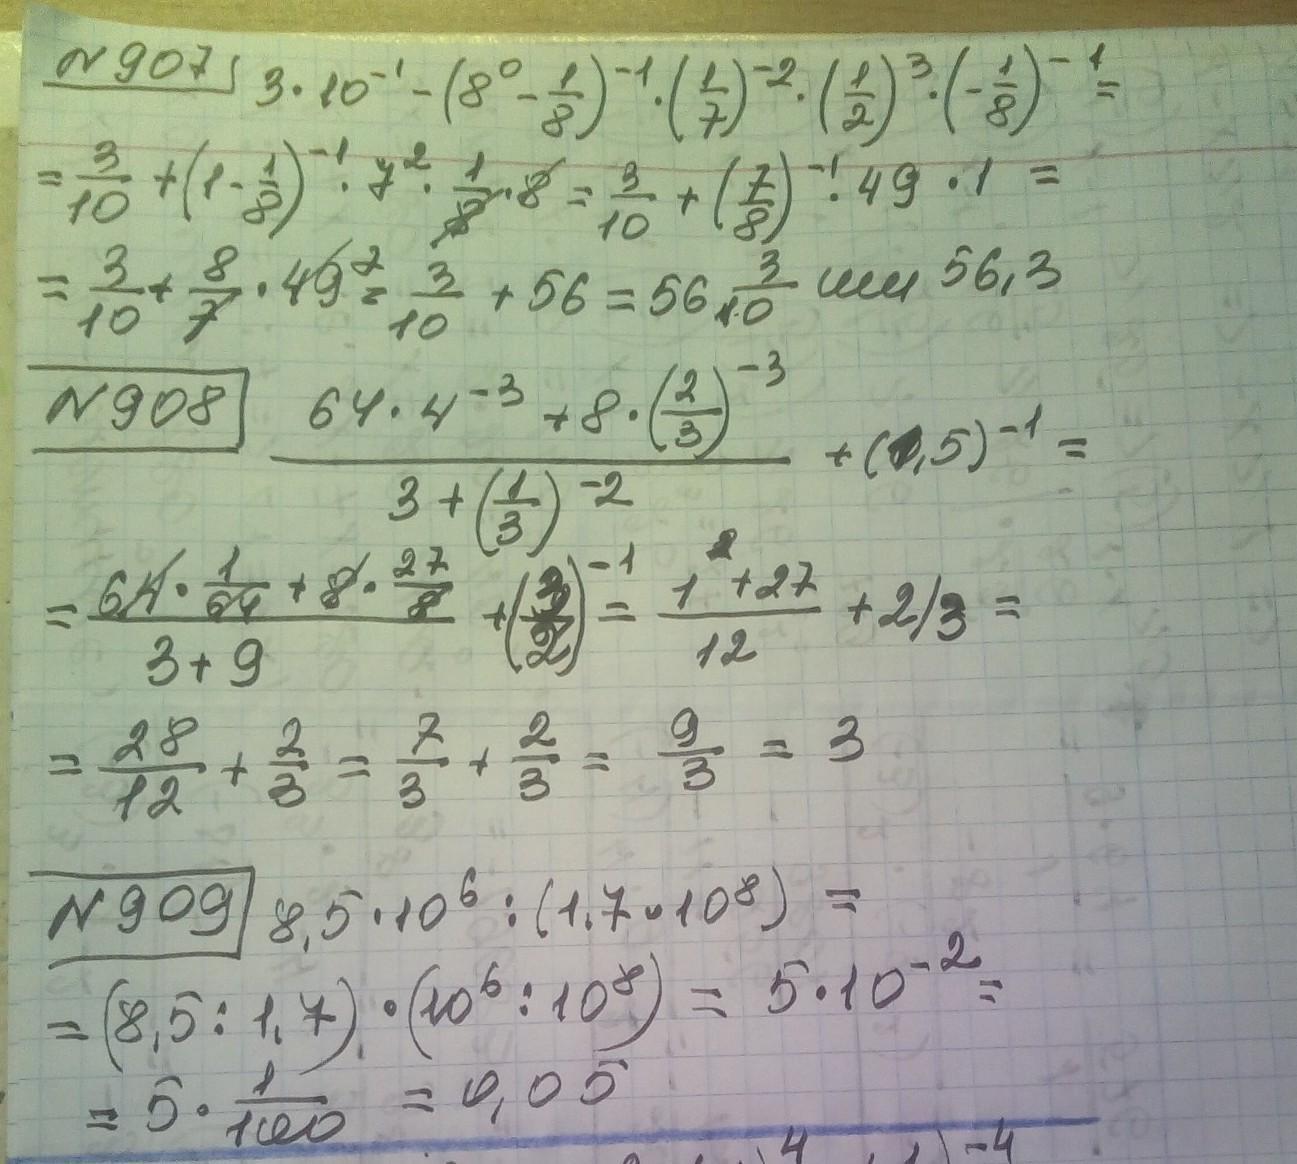 N907 3·10⁻¹ - (8⁰ - 1/8)⁻¹ · (1/7)⁻² · (1/2)³ · (-1/8)⁻¹ =
= 3/10 + (1 - 1/8)⁻¹ · 7² · 1/8 · 8 = 3/10 + (7/8)⁻¹ · 49 · 1 =
= 3/10 + 8/7 · 49⁷ = 3/10 + 56 = 56 3/10 или 56,3
N908 (64 · 4⁻³ + 8 · (2/3)⁻³)/(3 + (1/3)⁻²) + (1,5)⁻¹ =
= (64 · 1/64 + 8 · 27/8)/(3+9) + (3/2)⁻¹ = (1+27)/12 + 2/3 =
= 28/12 + 2/3 = 7/3 + 2/3 = 9/3 = 3
N909 8,5·10⁶ : (1,7·10⁸) =
= (8,5 : 1,7) · (10⁶ : 10⁸) = 5·10⁻² =
= 5 · 1/100 = 0,05